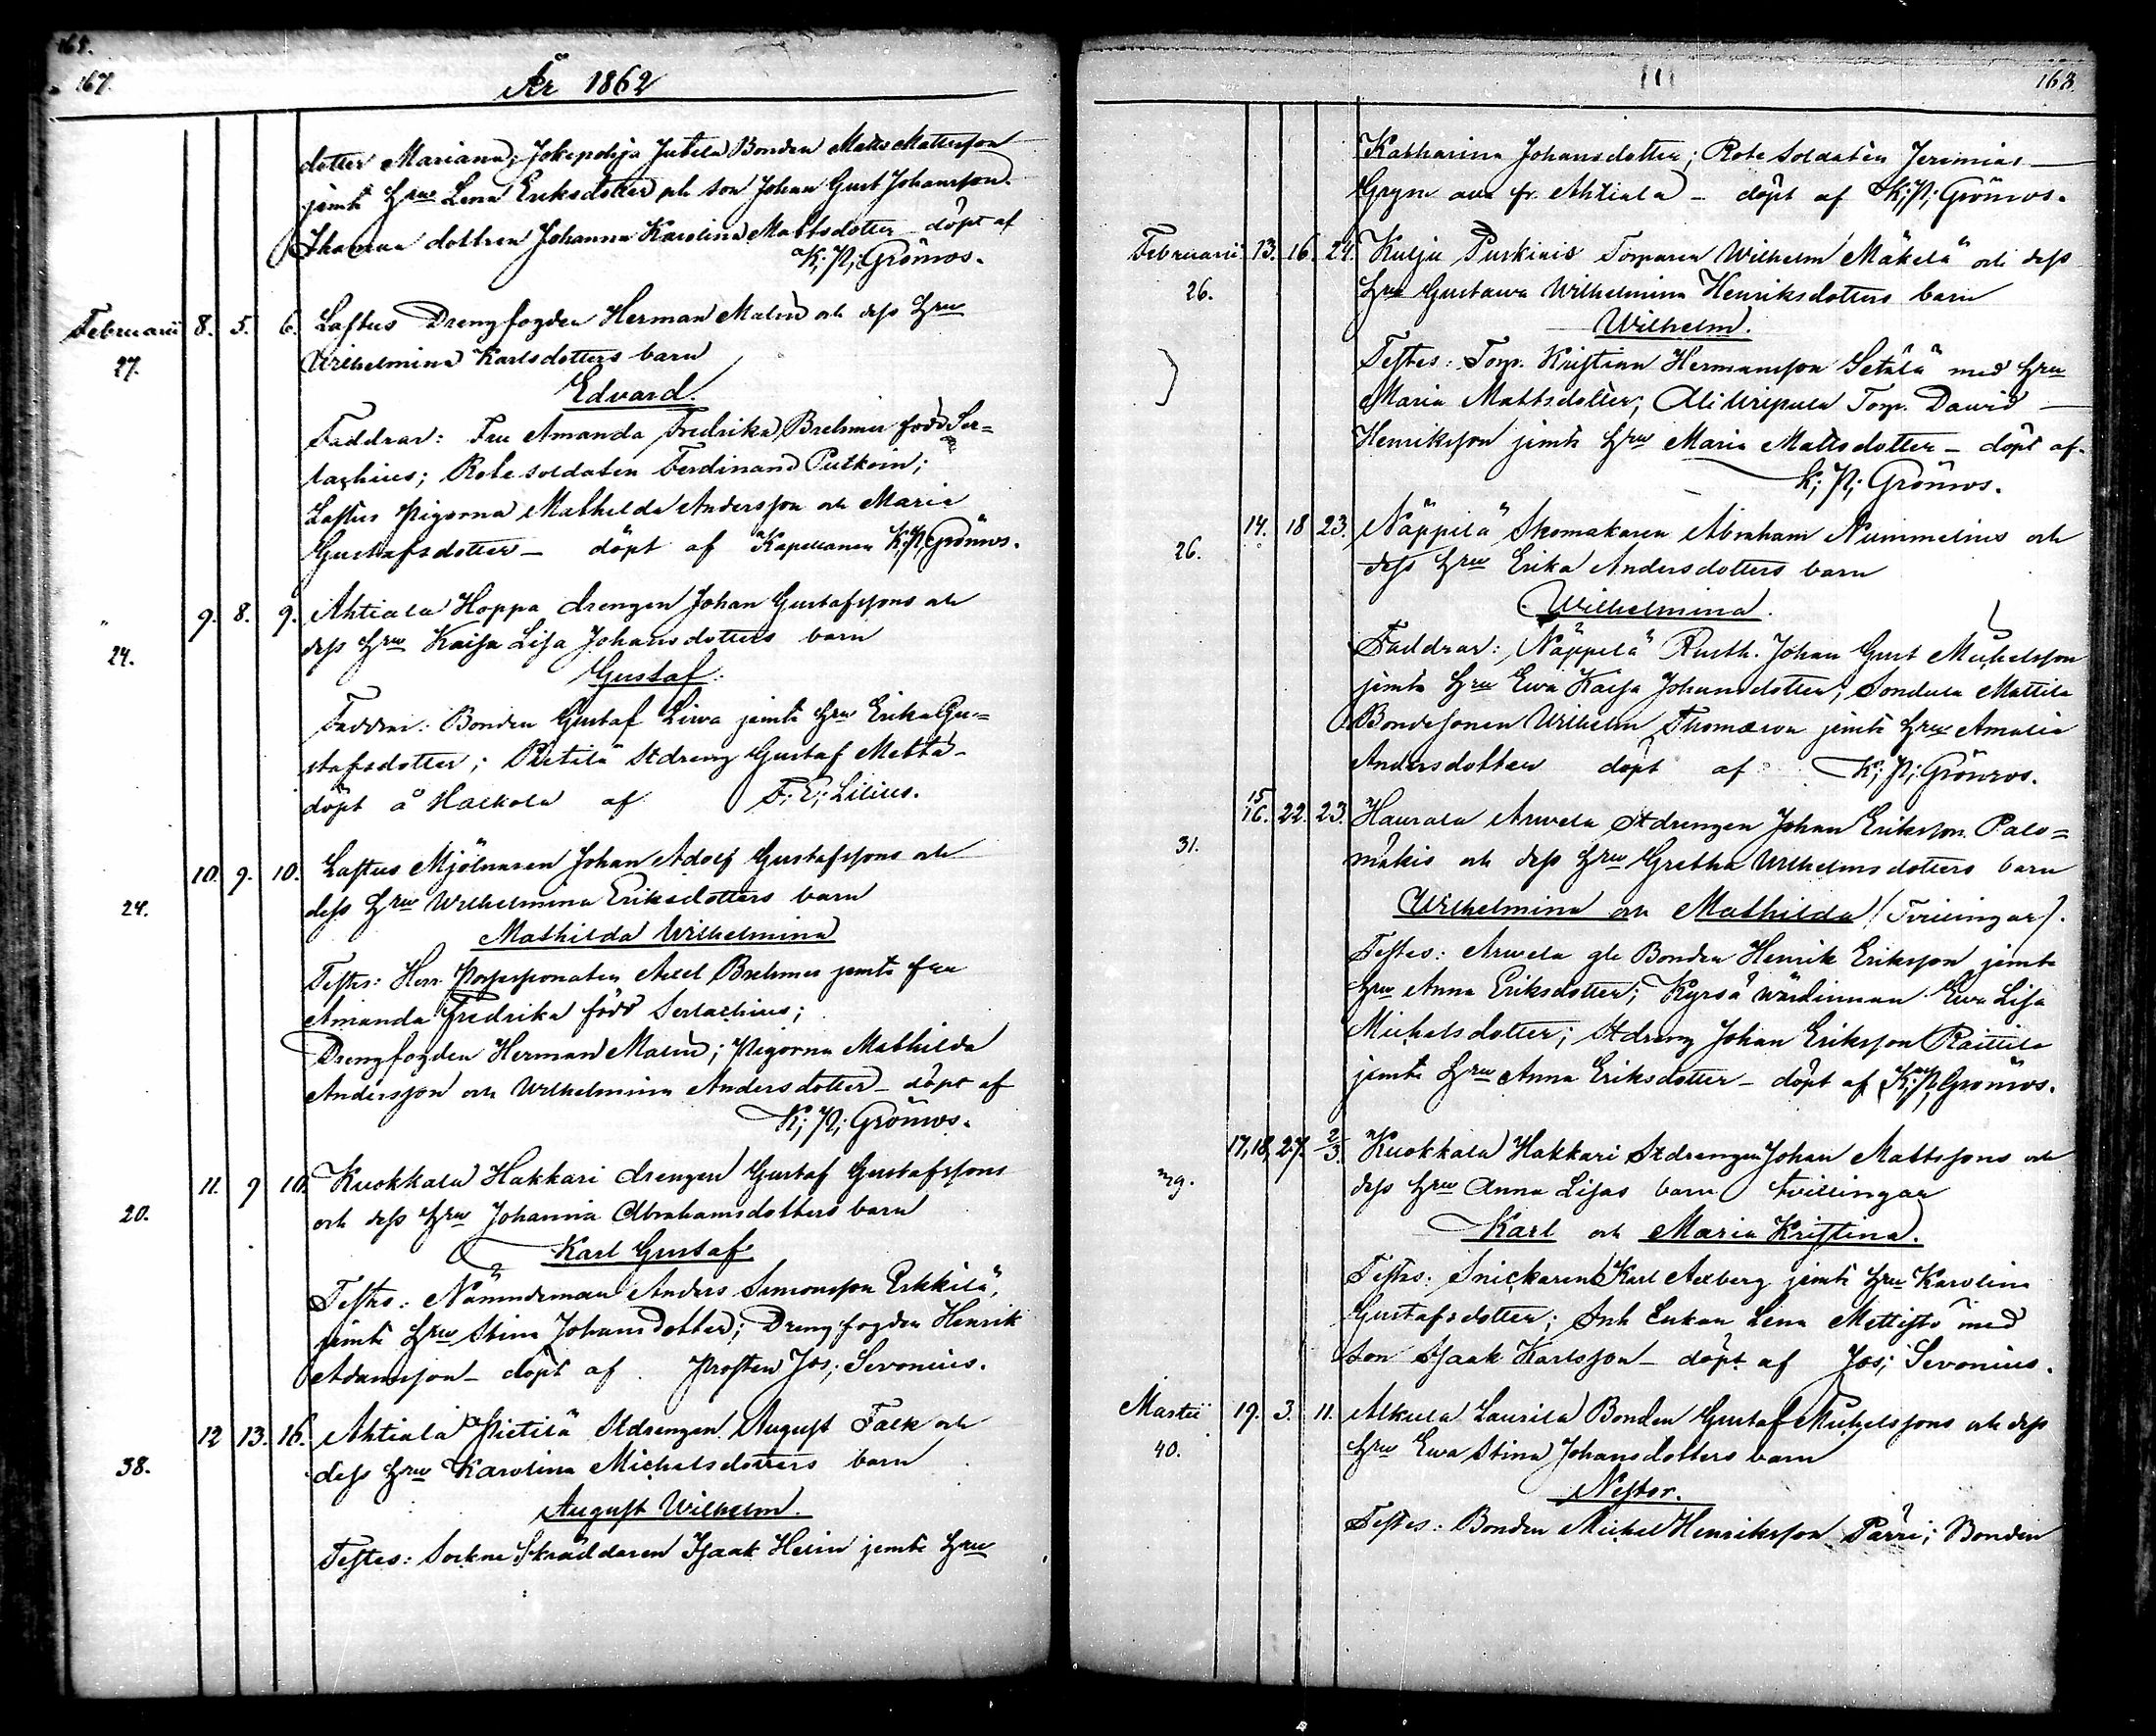 167.
År 1862
dotter Mariana; Jokipohja Jutila Bonden Matts Mattsson
jemte Hru Lena Eriksdotter och son Johan Gust Johansson
dottren Johanna Karolina Mattsdotter döpt af
K; P; Grönros.
Februarii 8. 5. 6. Laftus Drengfogden Herman Malm och dess Hru
27. Wilhelmina Karlsdotters barn
Edvard.
Faddrar: Fru Amanda Fredrika Brehmer född Ser=
lachius; Rote soldaten Ferdinand Putkoin;
Laftus Pigorna Mathilda Andersson och Maria
Gustafsdotter — döpt af Kapellanen K; P; Grönros.
" 9. 8. 9. Ahtiala Hoppa drengen Johan Gustafssons och
24. dess Hru Kaisa Lisa Johansdotters barn
Gustaf.
Faddrar: Bonden Gustaf Liwa jemte Hru Erika Gu=
stafsdotter; Pietilä Stdreng Gustaf Mettä —
döpt å Halkola af F; E; Lilius.
10. 9. 10. Laftus Mjölnaren Johan Adolf Gustafssons och
24. dess Hru Wilhelmina Eriksdotters barn
Mathilda Wilhelmina
Testes: Herr Possessionaten Axel Brehmer jemte fru
Amanda Fredrika född Serlachius;
Drengfogden Herman Malm; Pigorna Mathilda
Andersson och Wilhelmina Andersdotter — döpt af
K; P; Grönros.
11. 9 10. Kuokkala Hakkari drengen Gustaf Gustafssons
20. och dess Hru Johanna Abrahamsdotters barn
Karl Gustaf
Testes: Nämndeman Anders Simonsson Erkkilä,
jemte Hru Stina Johansdotter; Drengfogden Henrik
Adamsson — döpt af Prosten Jos; Sevonius.
12 13. 16. Ahtiala Pietilä Stdrengen August Falk och
38. dess Hru Karolina Michelsdotters barn
August Wilhelm.
Testes: Sockne Skräddaren Isaak Helin jemte Hru
163.
Katharina Johansdotter; Rote Soldaten Jeremias —
Grym fr. Ahtiala — döpt af K; P; Grönros.
Februarii 13. 16. 24. Kulju Purkinis Torparen Wilhelm Mäkelä och dess
26. Hru Gustawa Wilhelmina Henriksdotters barn
Wilhelm.
Testes: Torp. Kristian Hermansson Setälä med Hru
Maria Mattsdotter; Torp. Dawid —
Henriksson jemte Hru Maria Mattsdotter — döpt af
K; P; Grönros.
14. 18 23. Näppilä Skomakaren Abraham Nummelins och
26. dess Hru Erika Andersdotters barn
Wilhelmina.
Faddrar: Näppilä Rusth. Johan Gust Michelsson
jemte Hru Ewa Kaisa Johansdotter; Sondula Mattila
Bondesonen Wilhelm Thomasson jemte Hru Amalia
Andersdotter döpt af K; P; Grönros.
15
16. 22. 23. Haurala Arwela Stdrengen Johan Eriksson Palo=
31. mäkis och dess Hru Gretha Wilhelmsdotters barn
Wilhelmina och Mathilda (Tvillingar).
Testes: Arwela gle Bonden Henrik Eriksson jemte
Hru Anna Eriksdotter; Kyrsä wärdinnan Ewa Lisa
Michelsdotter; Stdreng Johan Eriksson Raittila
jemte Hru Anna Eriksdotter — döpt af K; P; Grönros.
17, 18, 27. 2/3. Kuokkala Hakkari Stdrengen Johan Mattssons och
29. dess Hru Anna Lisas barn tvillingar
Karl och Maria Kristina.
Testes: Snickaren Karl Axberg jemte Hru Karolina
Gustafsdotter; Inh Enkan Lena Mettistö med
Son Isaak Karlsson — döpt af Jos; Sevonius.
Martii 19. 3. 11. Alkula Laurila Bonden Gustaf Michelssons och dess
40. Hru Ewa Stina Johansdotters barn
Nestor.
Testes: Bonden Michel Henriksson Pärri; Bonden